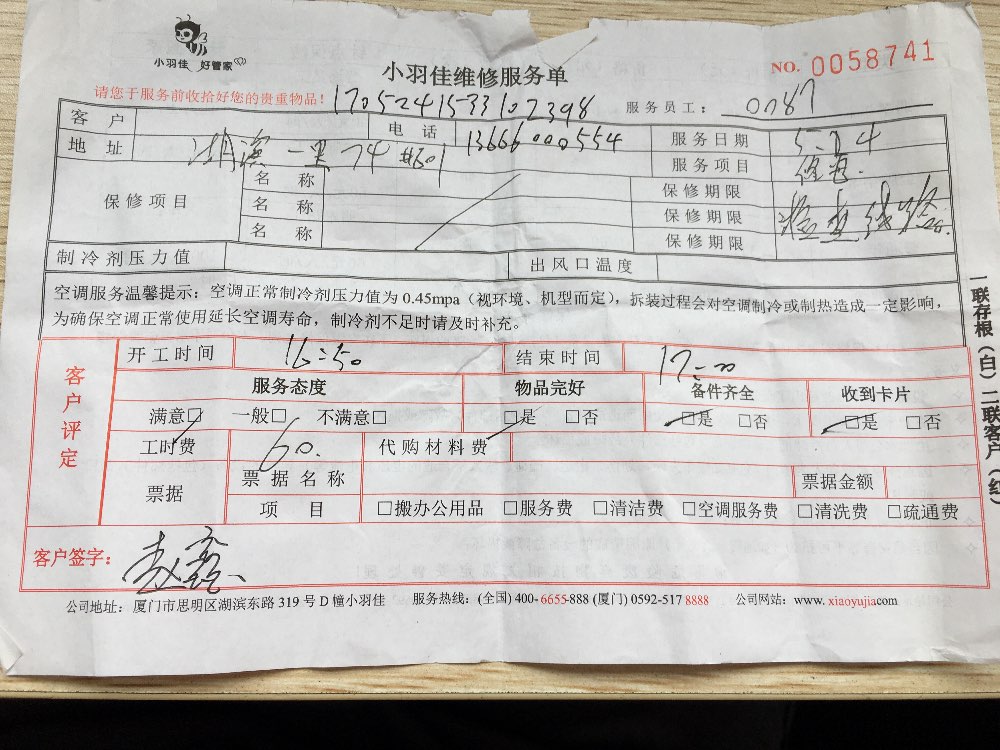 小羽佳 好管家
小羽佳维修服务单
NO. 0058741
请您于服务前收拾好您的贵重物品！
1705241533102398
服务员工： 0087
客 户 电 话 13666000554 服务日期 5-24
地 址 湖滨一里74#601 服务项目
保修项目
名 称 保修期限
名 称 保修期限
名 称 保修期限
检查线路
制冷剂压力值 出风口温度
空调服务温馨提示：空调正常制冷剂压力值为 0.45mpa（视环境、机型而定），拆装过程会对空调制冷或制热造成一定影响，
为确保空调正常使用延长空调寿命，制冷剂不足时请及时补充。
客户评定
开工时间 16:50 结束时间 17:00
服务态度 物品完好 备件齐全 收到卡片
满意□ 一般□ 不满意□ □是 □否 □是 □否 □是 □否
工时费 60. 代购材料费
票据 票据名称 票据金额
项 目 □搬办公用品 □服务费 □清洁费 □空调服务费 □清洗费 □疏通费
客户签字：
公司地址：厦门市思明区湖滨东路 319 号 D 幢小羽佳 服务热线：(全国) 400-6655-888 (厦门) 0592-517 8888 公司网站：www. xiaoyujiacom
一联存根（白）二联客户（红）